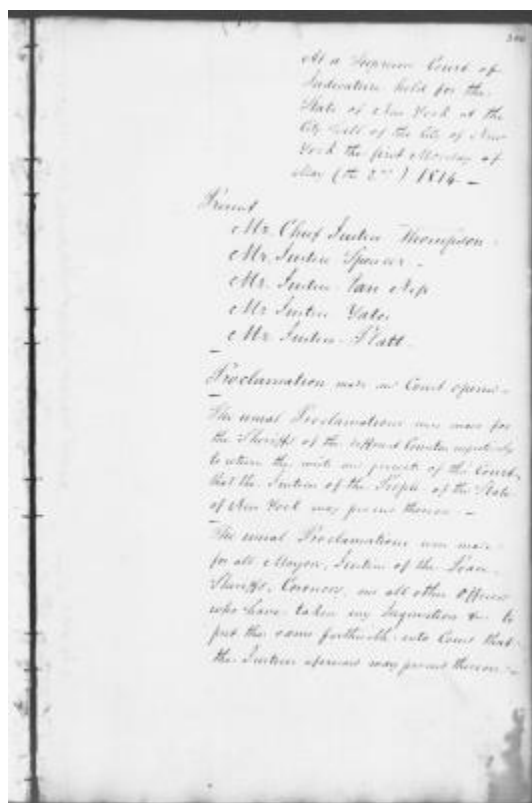 At a Supreme Court of
Judicature held for the
State of New York at the
City Hall of the City of New
York the first Monday of
May (the 2nd) 1814 —
Present
Mr. Chief Justice Thompson
Mr. Justice Spencer
Mr. Justice Van Ness
Mr Justice Yates
Mr. Justice Platt
Proclamation made and Court opened —
The usual Proclamations were made for
the Sheriffs of the different Counties respectively
to return the writs and precepts of the Court
that the Justices of the People of the State
of New York may proceed thereon —
The usual Proclamations were made
for all Mayors, Justices of the Peace,
Sheriffs, Coroners, and all other Officers
who have taken any Inquisition &c to
put the same forthwith into Court that
the Justices aforesaid may proceed thereon —